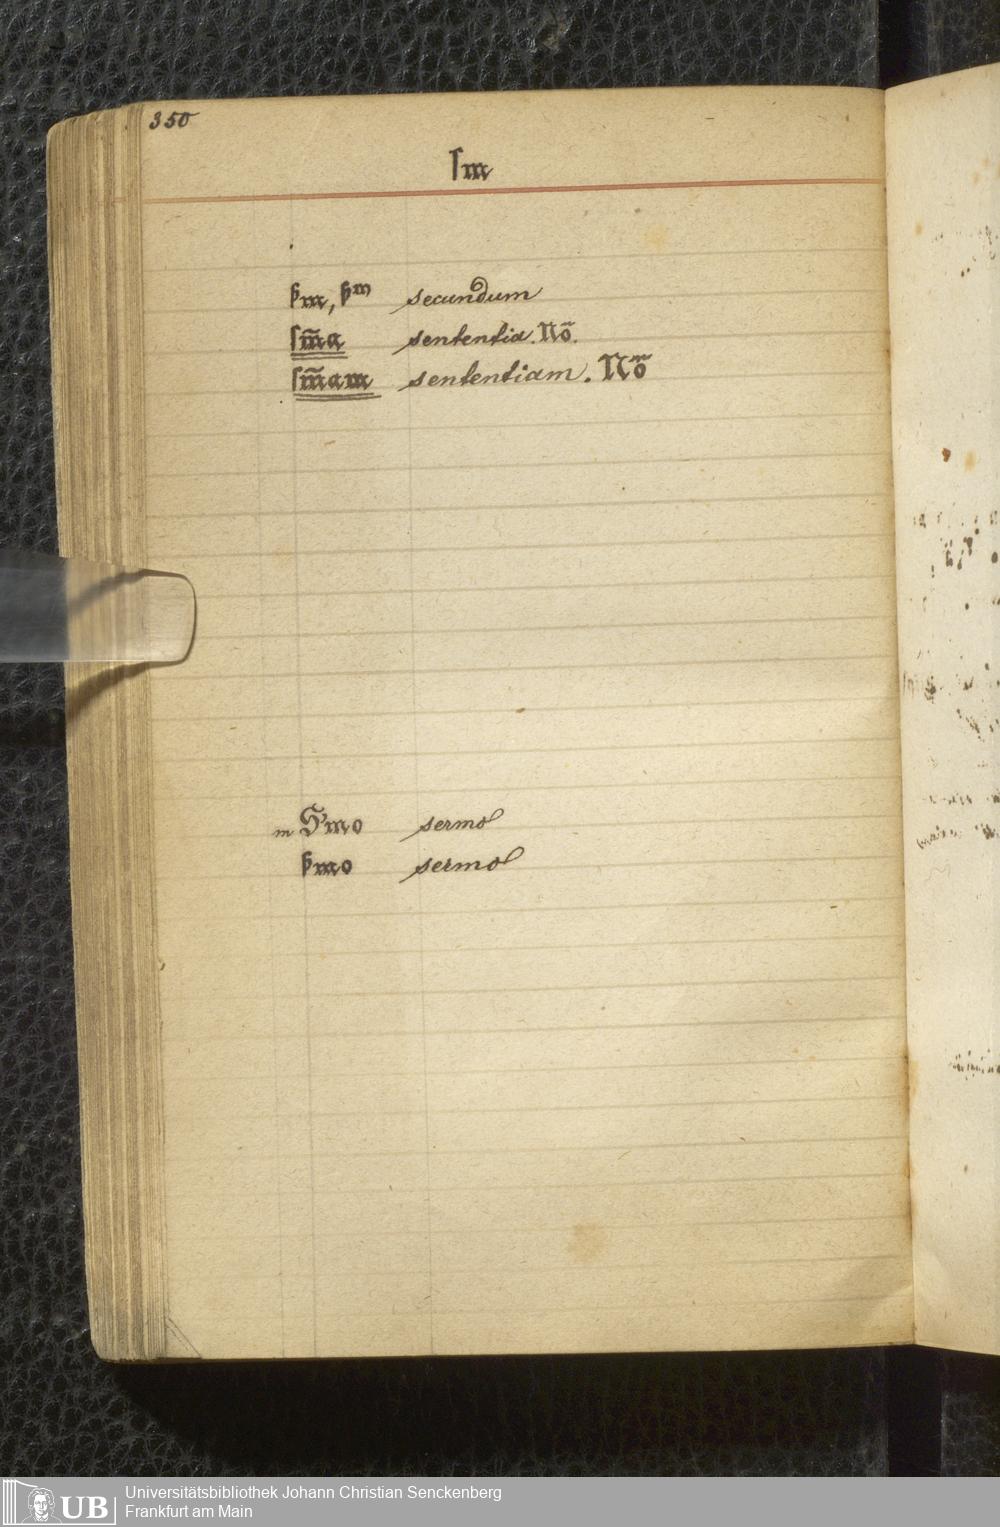 350
ſm
ẜm, ẜᵐ secundum
ſm̄a sententia. No̅.
ſm̄am sententiam. No̅
m S'mo sermo
ẜmo sermo
UB Universitätsbibliothek Johann Christian Senckenberg
Frankfurt am Main